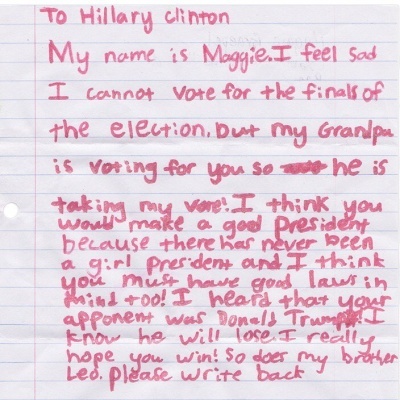 To Hillary Clinton
My name is Maggie. I feel sad
I cannot vote for the finals of
the election. But my Grandpa
is voting for you so he is
taking my vote! I think you
would make a good President
because there has never been
a girl president and I think
you must have good laws in
mind too! I heard that your
apponent was Donald Trump! I
know he will lose. I really
hope you win! So does my brother
Leo. please write back